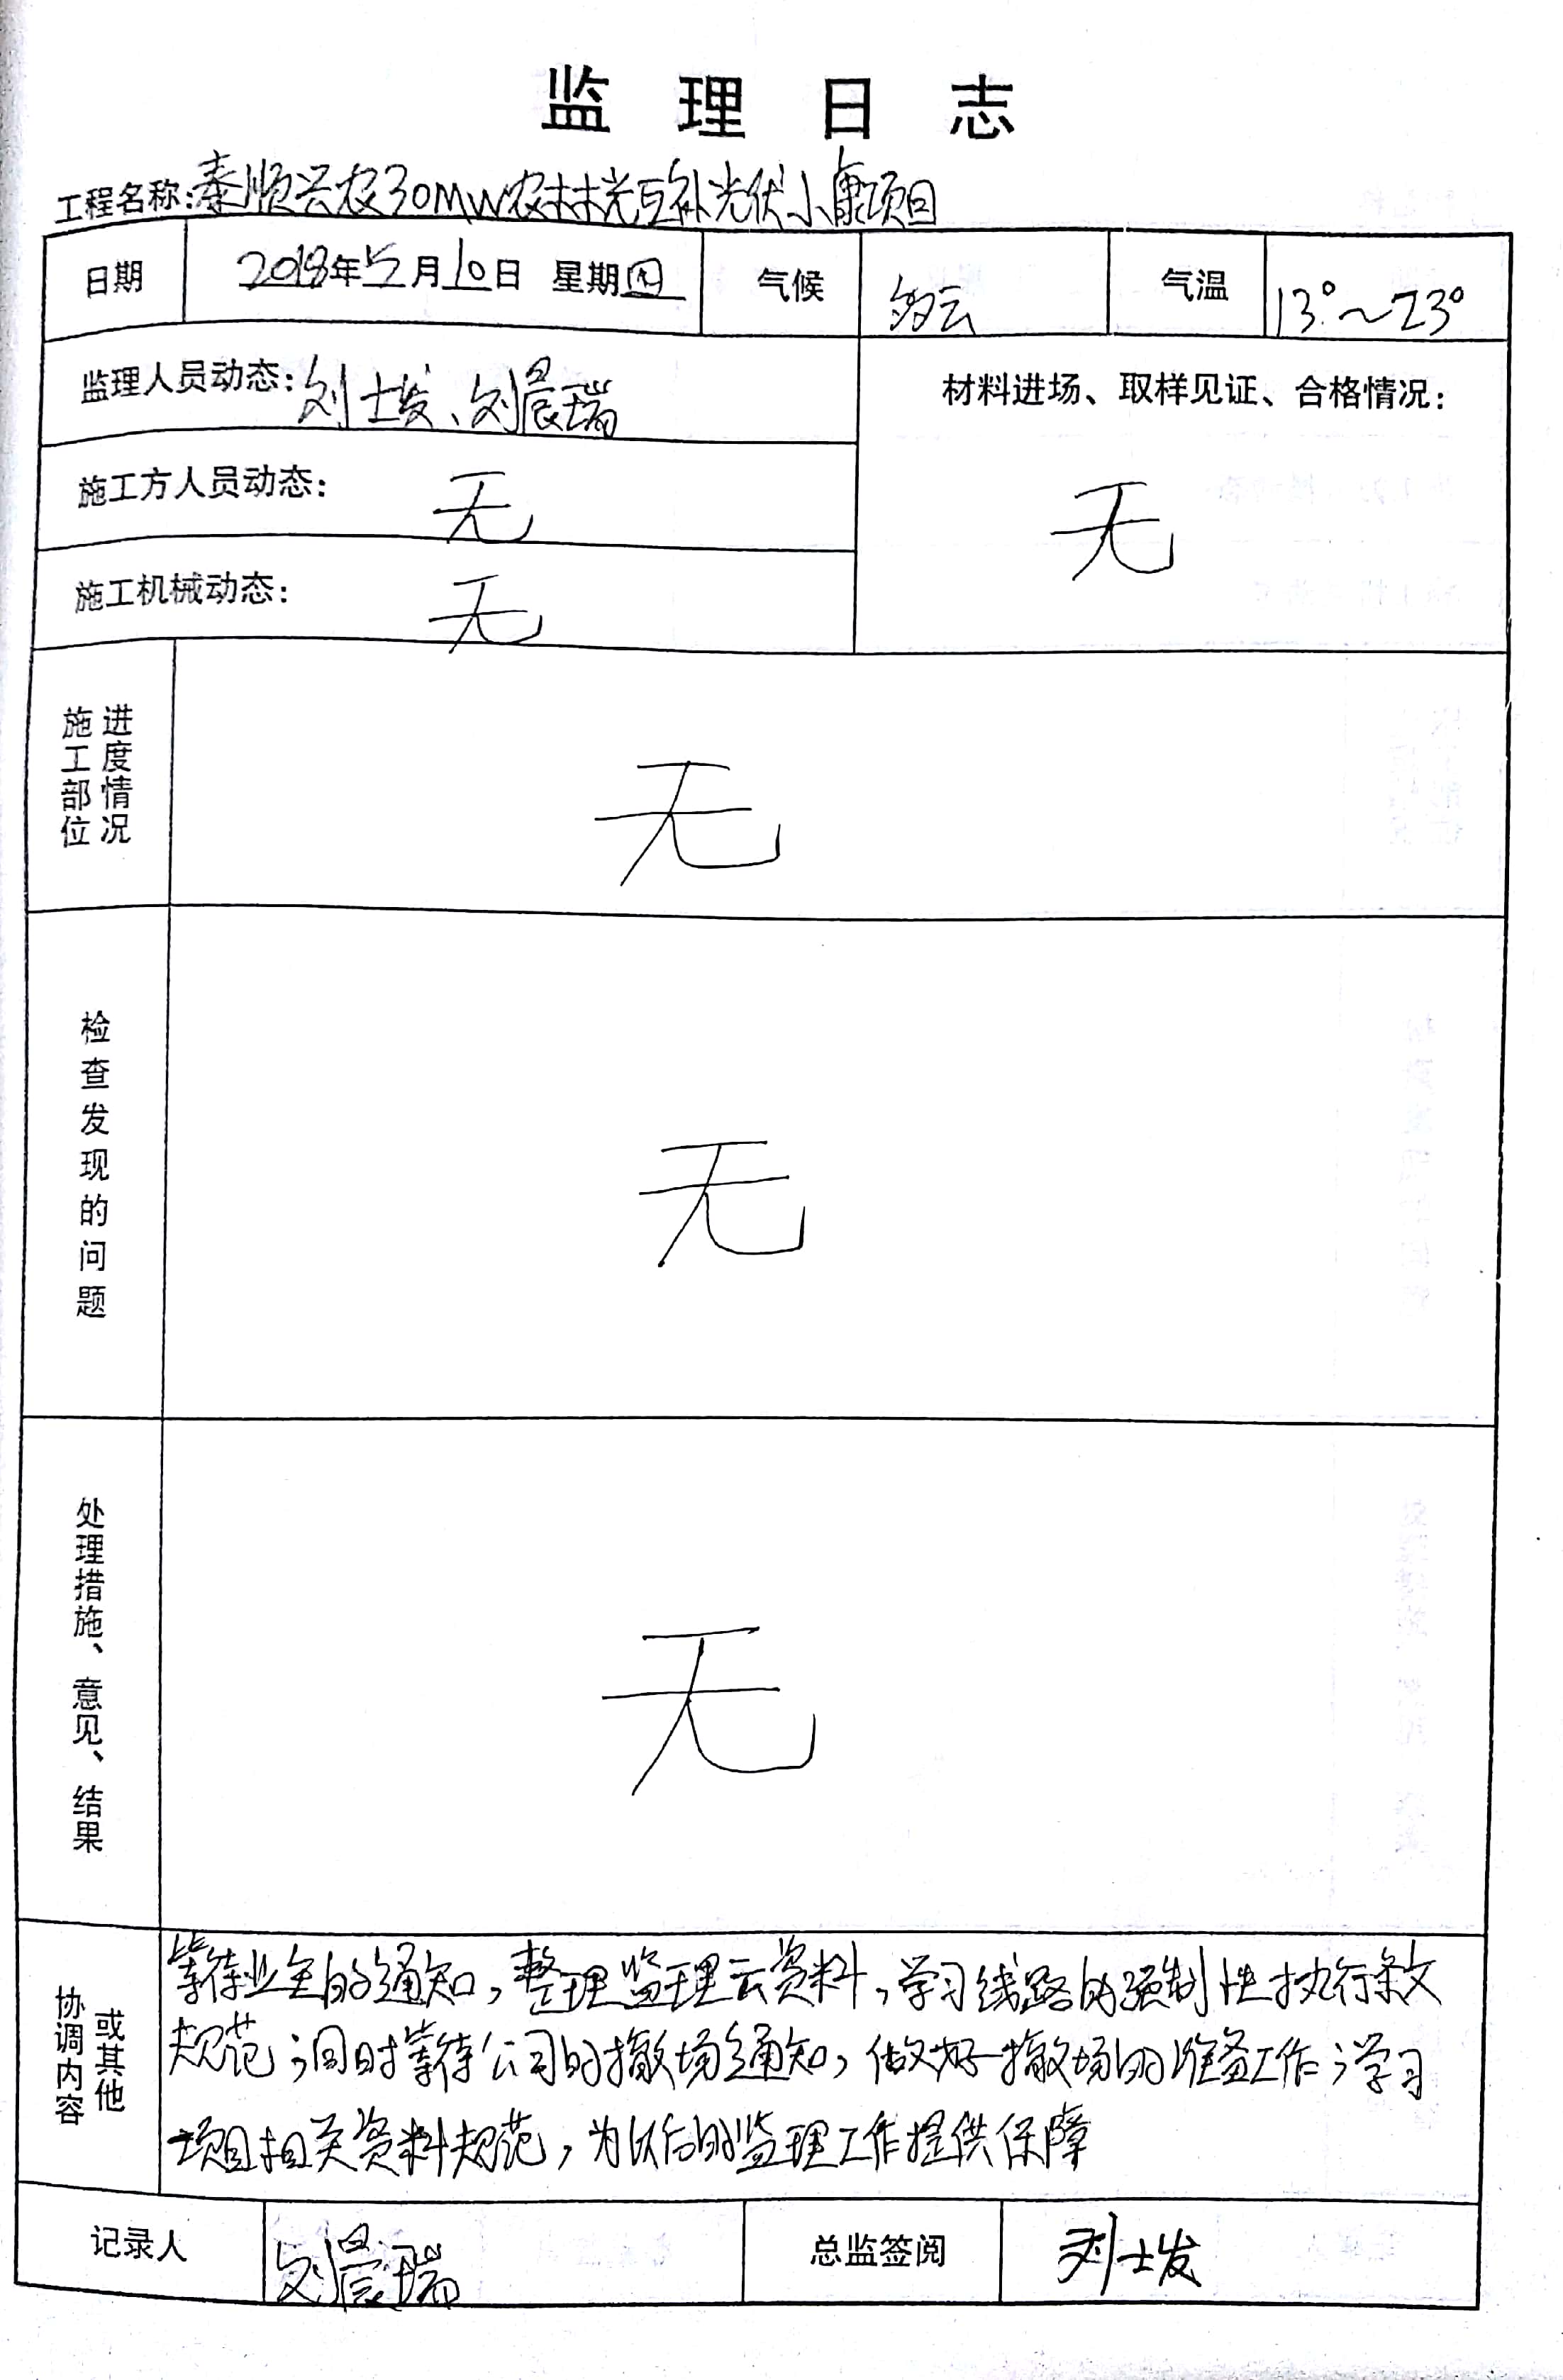 监理日志
工程名称:泰顺兴农30MW农林光互补光伏小康项目
日期 2018年5月10日 星期四 气候 多云 气温 13°~23°
监理人员动态:刘士发、刘晨瑞 材料进场、取样见证、合格情况:
施工方人员动态: 无 无
施工机械动态: 无
施工部位 进度情况 无
检查发现的问题 无
处理措施、意见、结果 无
协调内容 或其他
等待业主的通知,整理监理云资料,学习线路的强制性执行条文
规范;同时等待公司的撤场通知,做好撤场的准备工作;学习
项目相关资料规范,为以后的监理工作提供保障
记录人 刘晨瑞 总监签阅 刘士发